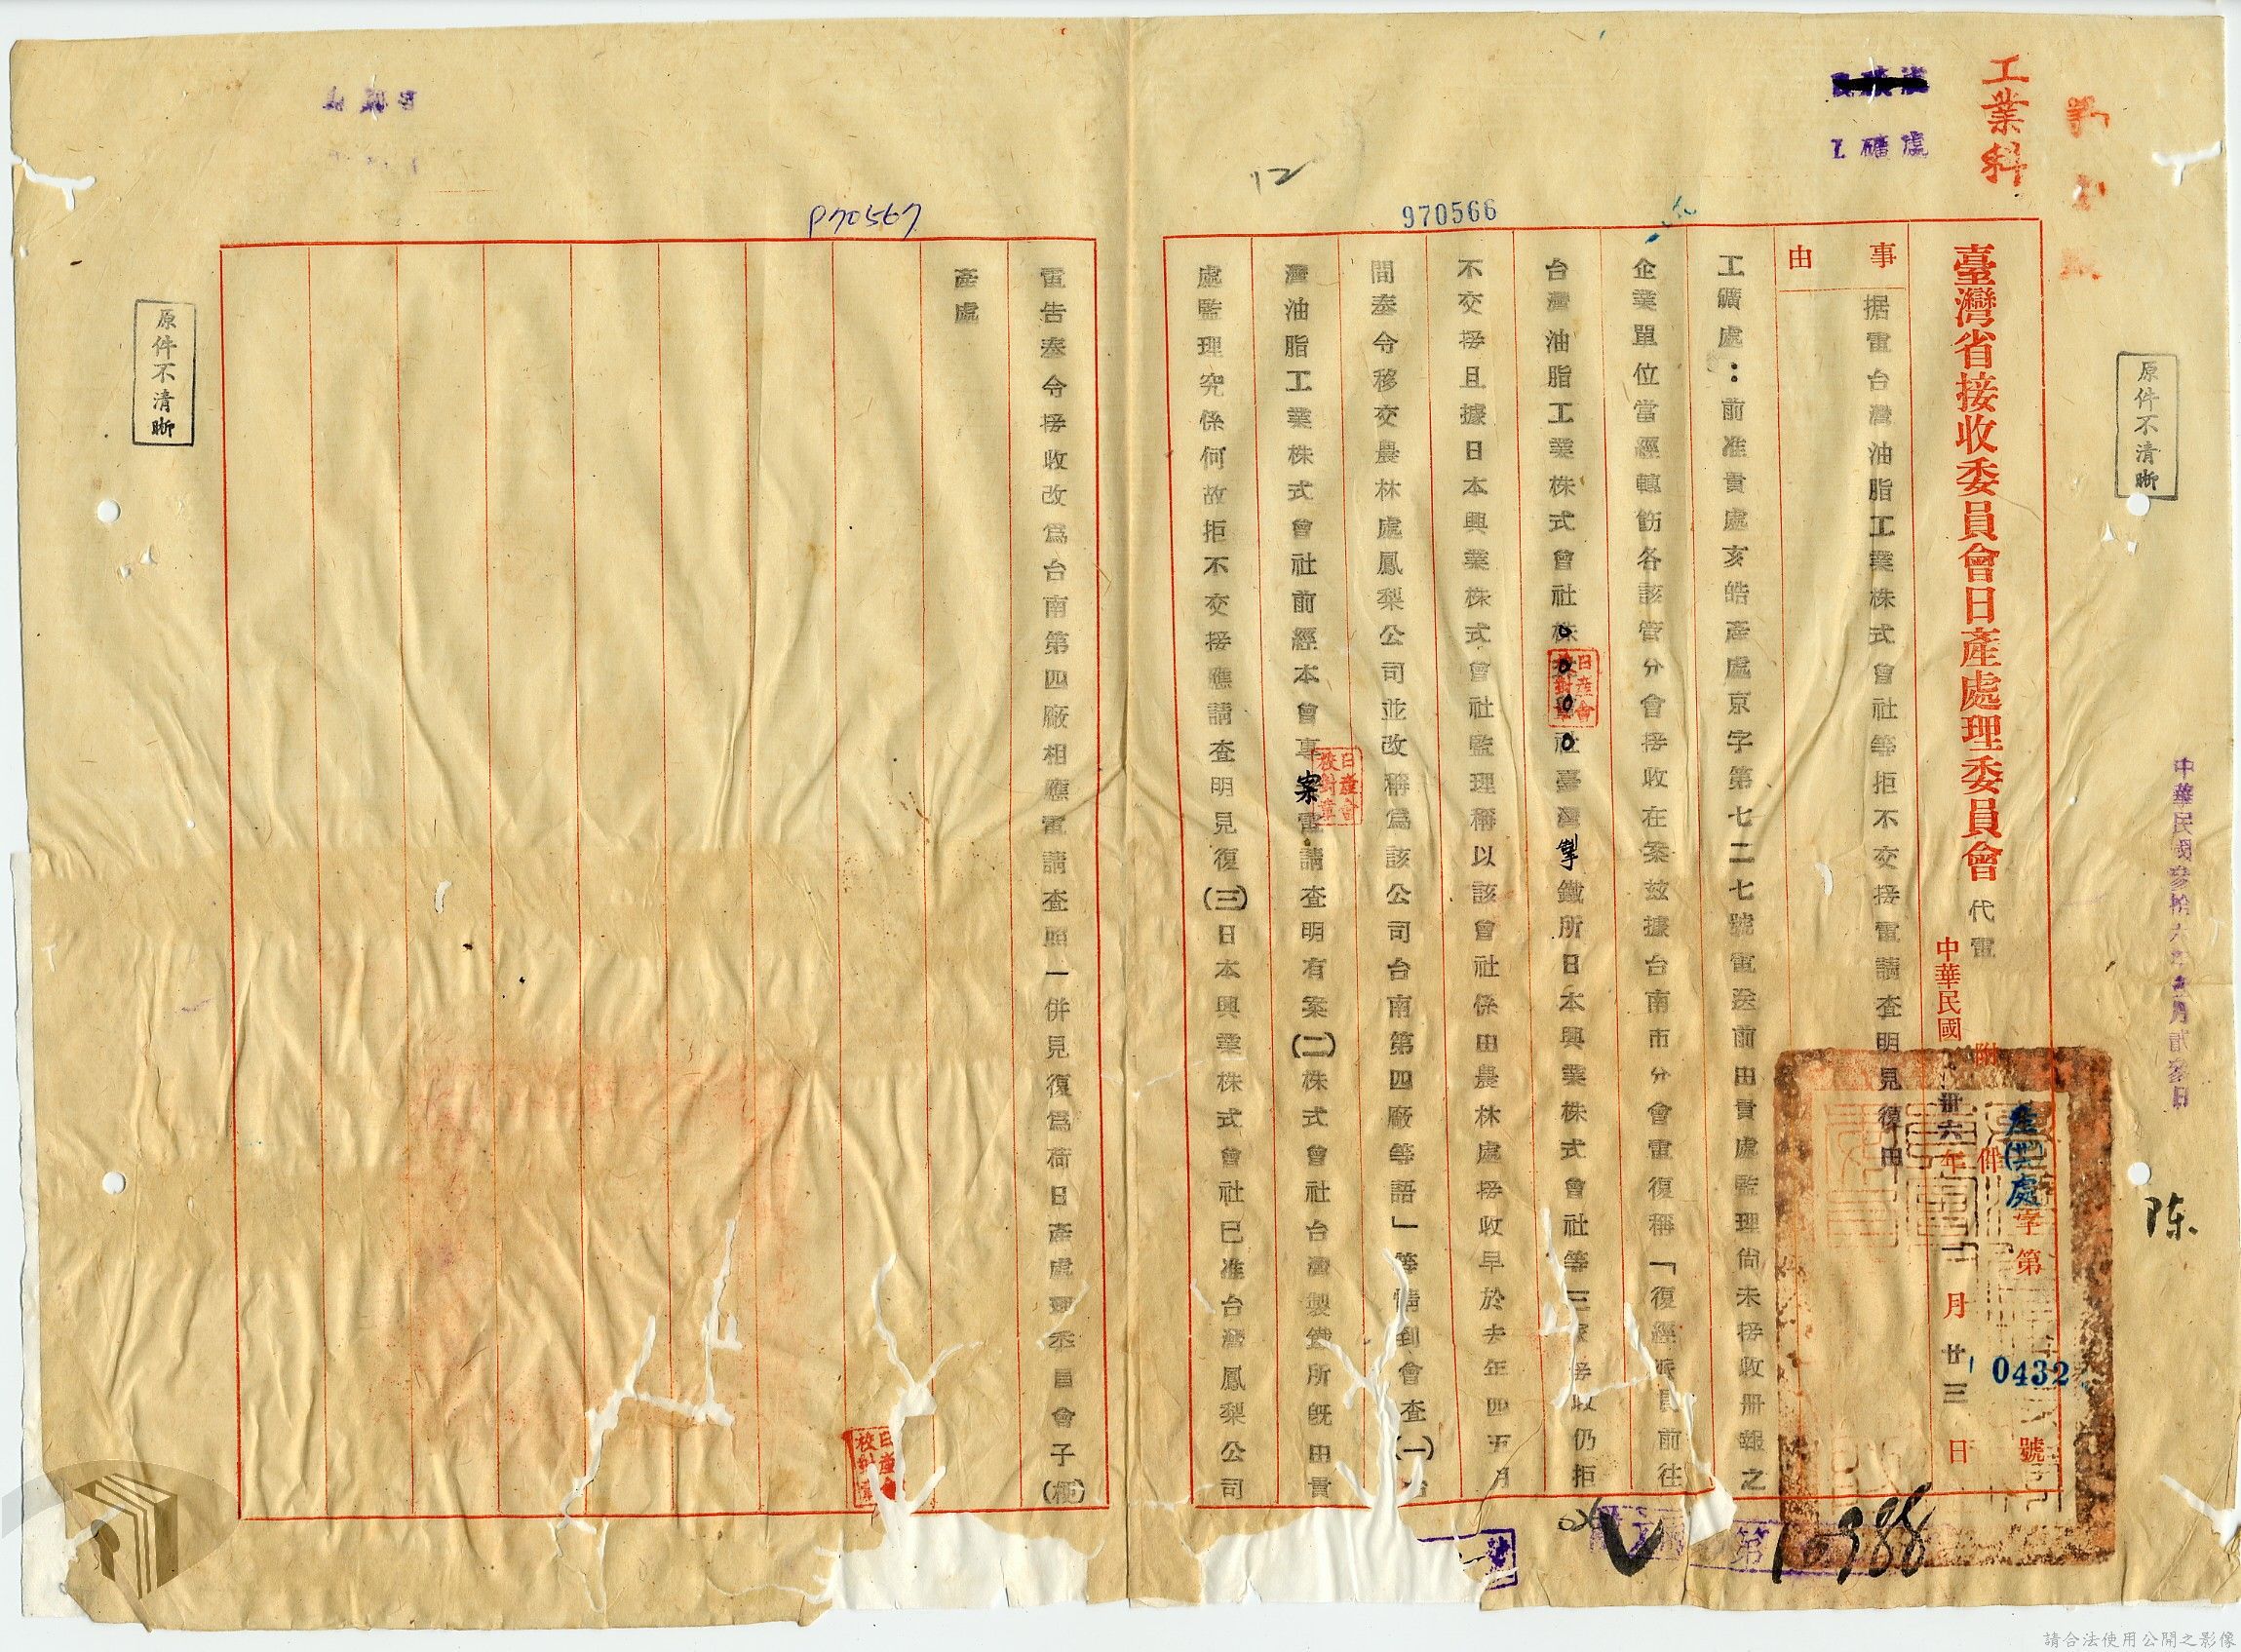 工業科
工礦處
970566
12
P70567
原件不清晰
中華民國參拾六年壹月貳參日
陈
臺灣省接收委員會日產處理委員會 代電
中華民國卅六年一月廿三日
附件
產處字第0432號
事由
据電台灣油脂工業株式會社等拒不交接電請查明見復由
工礦處：前准貴處亥皓產處京字第七二七號電送前由貴處監理尙未接收册報之
企業單位當經轉飭各該管分會接收在案玆據台南市分會電復稱「復經派員前往
台灣油脂工業株式會社株式會社臺灣製鐵所日本興業株式會社等三家接收仍拒
不交接且據日本興業株式會社監理稱以該會社係由農林處接收早於去年四五月
間奉令移交農林處鳳梨公司並改稱爲該公司台南第四廠等語」等情到會查(一)台
灣油脂工業株式會社前經本會專案電請查明有案(二)株式會社台灣製鐵所旣由貴
處監理究係何故拒不交接應請查明見復(三)日本興業株式會社已准台灣鳳梨公司
電告奉令接收改爲台南第四廠相應電請查照一併見復爲荷日產處理委員會子(梗)
產處
日產會校對章
日產會校對章
日產會校對章
原件不清晰
第10388
請合法使用公開之影像